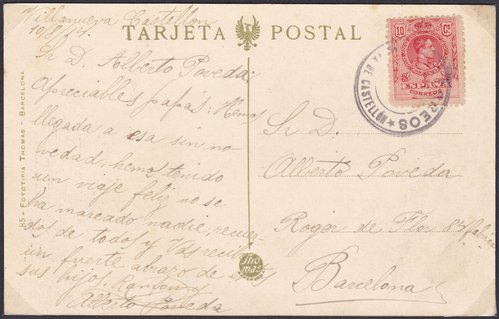 TARJETA POSTAL
Villanueva Castellon
10/8/14.
Sr D. Alberto Poveda:
Apreciables papás: Hemos
llegada a esa sin no-
vedad, hemos tenido
un viaje feliz no se
ha mareado nadie, recuer-
dos de todos y Vds reciban
un fuerte abrazo de estos
sus hijos. Ramon y
Alberto Poveda
Sr D.
Alberto Poveda
Roger de Flor 83
Barcelona
10 Cs
ESPAÑA
CORREOS
CORREOS
DE CASTELLÓN
85 - FOTOTIPIA THOMAS - BARCELONA
thomas